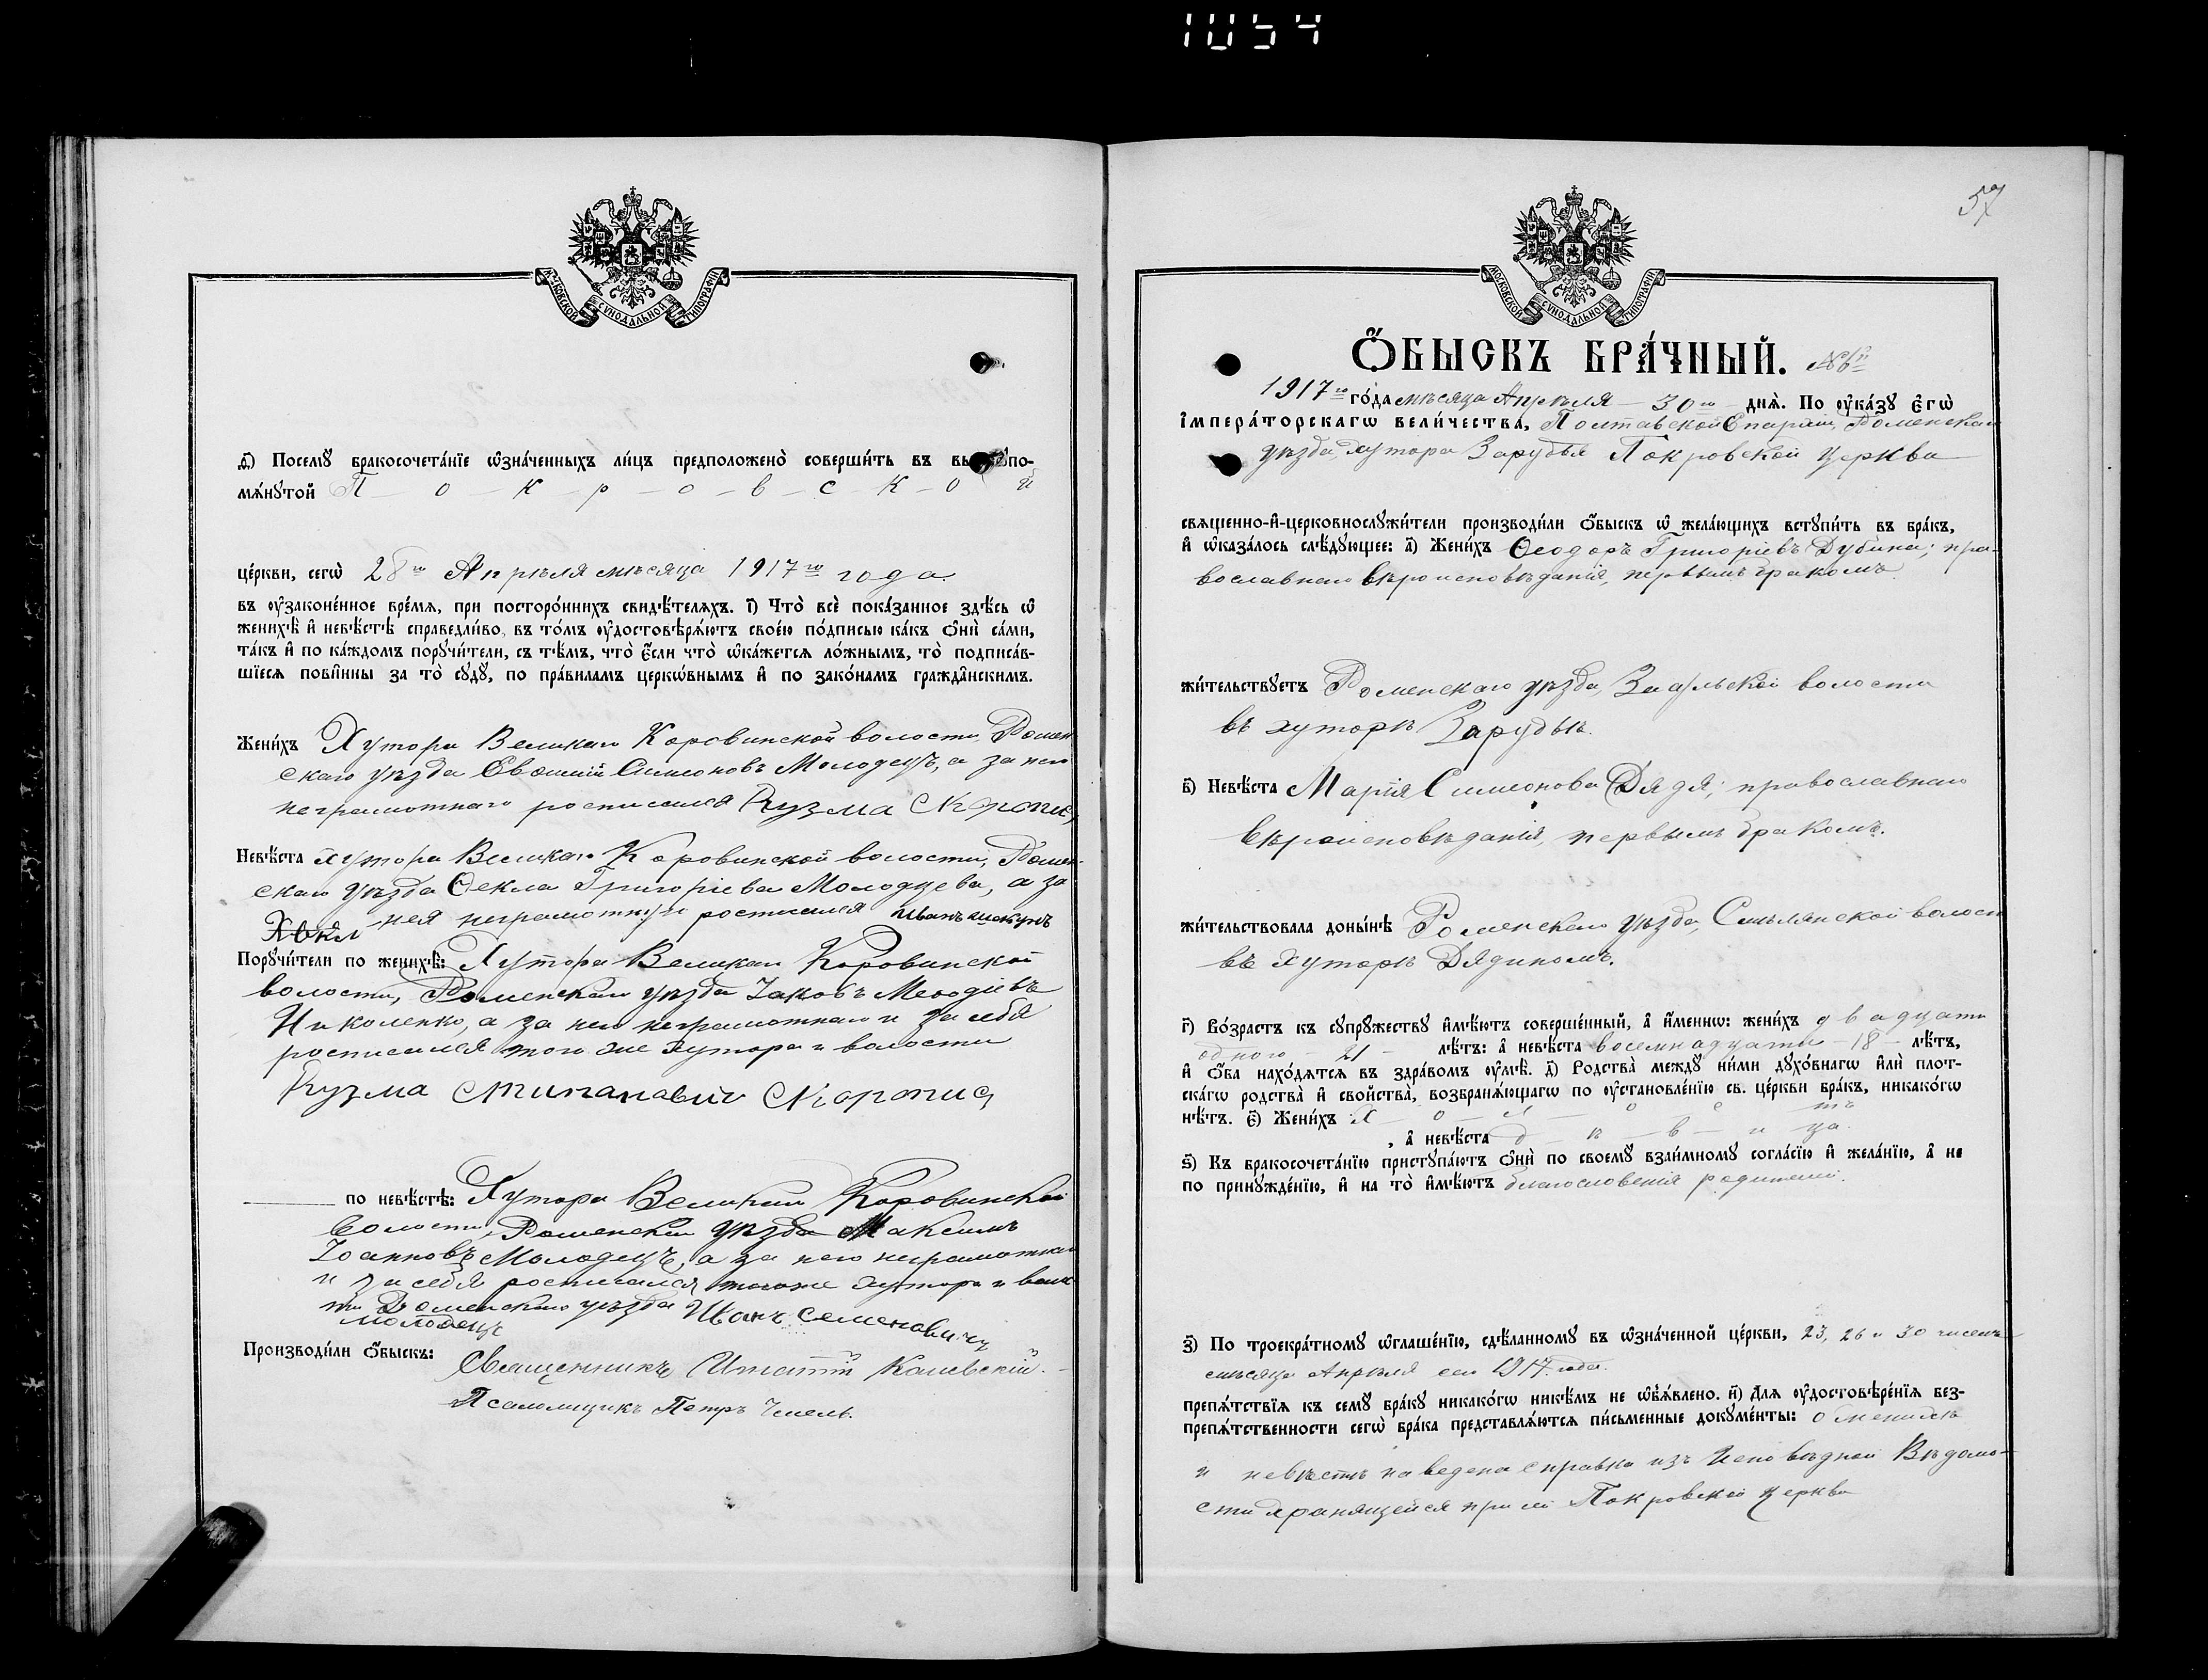 1054
МОСКОВСКОЙ СѴНОДАЛЬНОЙ ТИПОГРАФІИ
ѳ҃) Посемꙋ бракосочета́нїе ѡ҆зна́ченныхъ ли́цъ предположено̀ соверши́ть въ
мѧ́нꙋтой П - о - к - р - о - в - с - к - о й
це́ркви, сегѡ̀ 28го Апрѣля мѣсяца 1917го года
въ ᲂу҆законе́нное вре́мѧ, при посторо́ннихъ свидѣ́телѧхъ. і҃) Что̀ всѐ пока́занное здѣ́сь ѡ҆
женихѣ̀ и҆ невѣ́стѣ справедли́во, въ то́мъ ᲂу҆достовѣрѧ́ютъ свое́ю по́дписью ка́къ ѻ҆нѝ са́ми,
та́къ и҆ по ка́ждомъ порꙋчи́тели, съ тѣ́мъ, что̀ є҆́сли что̀ ѡ҆ка́жетсѧ ло́жнымъ, то̀ подписа́в-
шїесѧ пови́нны за то̀ сꙋдꙋ̀, по пра́виламъ церкѡ́внымъ и҆ по зако́намъ гражда̑нскимъ.
Жени́хъ Хутора Великаго Коровинской волости, Ромен
скаго уѣзда Евѳимій Симеоновъ Молодецъ, а за него
неграмотнаго росписался Кузма
Невѣ́ста хутора Великаго Коровинской волости, Ромен-
скаго уѣзда Ѳекла Григоріева Молодцева, а за
нея неграмотную росписался Иванъ
Порꙋчи́тели по женихѣ̀: Хутора Великаго Коровинской
волости, Роменскаго уѣзда Іаковъ Меѳодіевъ
Николенко, а за него неграмотнаго и за себя
росписался того же хутора и волости
Кузма
по невѣ́стѣ: Хутора Великаго Коровинской
волости, Роменскаго уѣзда Максимъ
Іоанновъ Молодецъ, а за него неграмотнаго
и за себя росписался тогоже хутора и воло
сти Роменскаго уѣзда Иванъ Семеновичъ
молодецъ
Производи́ли ѻ҆́быскъ: Священникъ Игнатій
Псаломщикъ Петръ
57
МОСКОВСКОЙ СѴНОДАЛЬНОЙ ТИПОГРАФІИ
Ѻ҆́БЫСКЪ БРА́ЧНЫЙ.
1917го го́да мѣсяца Апрѣля - 30го - днѧ̀. По ᲂу҆ка́зꙋ є҆гѡ̀
і҆мпера́торскагѡ вели́чества, Полтавской Епархіи, Роменскаго
уѣзда, хутора Зарудья Покровской церкви
свѧще́нно-и҆-церковнослꙋжи́тели производи́ли ѻ҆́быскъ ѡ҆ жела́ющихъ встꙋпи́ть въ бра́къ,
и҆ ѡ҆каза́лось слѣ́дꙋющее: а҃) Жени́хъ Ѳеодоръ Григоріевъ Дубина; пра-
вославнаго вѣроисповѣданія, первымъ бракомъ.
жи́тельствꙋетъ Роменскаго уѣзда, волости
въ хуторѣ Зарудьѣ.
в҃) Невѣ́ста Марія Симеонова Дядя; православнаго
вѣроисповѣданія, первымъ бракомъ.
жи́тельствовала доны́нѣ Роменскаго уѣзда, волост
въ хуторѣ Дядиномъ.
г҃) Во́зрастъ къ сꙋпрꙋ́жествꙋ и҆мѣ́ютъ соверше́нный, а҆ и҆́меннѡ: жени́хъ двадцати
одного - 21 - лѣ́тъ: а҆ невѣ́ста восемнадцати - 18 - лѣ́тъ,
и҆ ѻ҆́ба нахо́дѧтсѧ въ здра́вомъ ᲂу҆мѣ̀. д҃) Родства̀ междꙋ̀ ни́ми дꙋхо́внагѡ и҆лѝ плот-
ска́гѡ родства̀ и҆ свойства̀, возбранѧ́ющагѡ по ᲂу҆становле́нїю св. це́ркви бра́къ, никако́гѡ
нѣ́тъ. є҃) Жени́хъ Х - о - л - о - с - тъ
, а҆ невѣ́ста д - ѣ - в - и ца.
ѕ҃) Къ бракосочета́нїю пристꙋпа́ютъ ѻ҆нѝ по своемꙋ̀ взаи́мномꙋ согла́сїю и҆ жела́нїю, а҆ не
по принꙋжде́нїю, и҆ на то̀ и҆мѣ́ютъ благословенія родителей.
з҃) По троекра́тномꙋ ѡ҆глаше́нїю, сдѣ́ланномꙋ въ ѡ҆зна́ченной це́ркви, 23, 26 и 30 чиселъ
мѣсяца Апрѣля сего 1917 года.
препѧ́тствїѧ къ семꙋ̀ бра́кꙋ никако́гѡ никѣ́мъ не ѡ҆б̾ѧ́влено. и҃) Длѧ ᲂу҆достовѣре́нїѧ без-
препѧ́тственности сегѡ̀ бра́ка представлѧ́ютсѧ пи́сьменные докꙋме́нты: о женихѣ
и невѣстѣ наведена справка изъ Исповѣдной Вѣдомо-
сти хранящейся при сей Покровской церкви